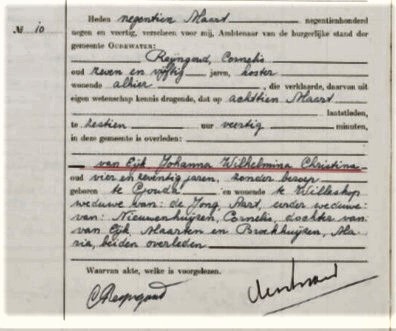 No 10
Heden negentien Maart negentienhonderd
negen en veertig, verscheen voor mij, Ambtenaar van de burgerlijke stand der
gemeente OUDEWATER:
Reijngoud, Cornelis
oud zeven en vijftig jaren, koster
wonende alhier, die verklaarde, daarvan uit
eigen wetenschap kennis dragende, dat op achttien Maart
laatstleden,
te zestien uur veertig minuten,
in deze gemeente is overleden:
van Eijk Johanna Wilhelmina Christina
oud vier en zeventig jaren, zonder beroep
geboren te Gouda en wonende te Willeskop
weduwe van: de Jong, Aart, eerder weduwe
van: Nieuwenhuijzen, Cornelis, dochter van
van Eijk, Maarten en Broekhuijzen, Ma-
ria, beiden overleden
Waarvan akte, welke is voorgelezen.
C Reijngoud